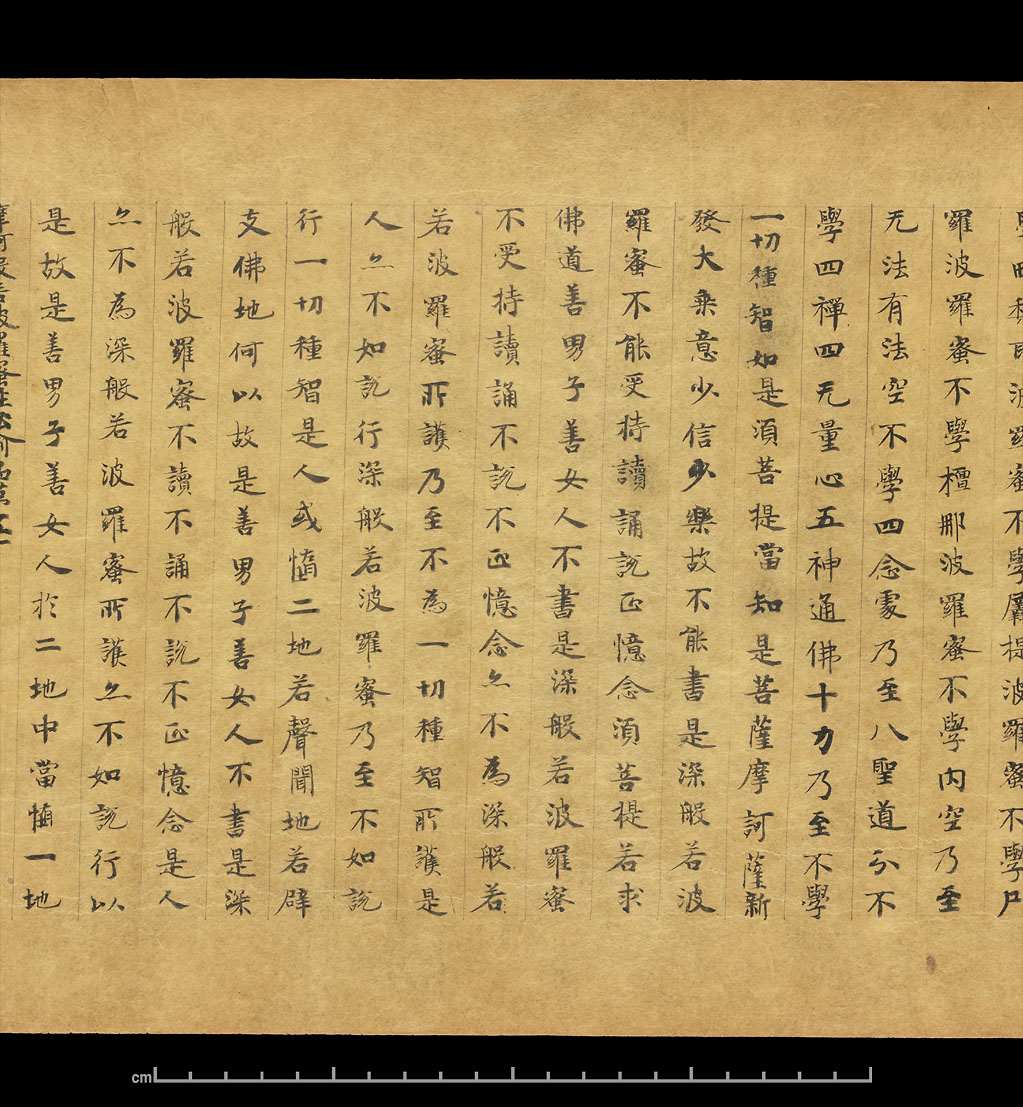 學波羅蜜不學羼提波羅蜜不學尸
羅波羅蜜不學檀那波羅蜜不學内空乃至
无法有法空不學四念處乃至八聖道分不
學四禪四无量心五神通佛十力乃至不學
一切種智如是須菩提當知是菩薩摩訶薩新
發大乘意少信少樂故不能書是深般若波
羅蜜不能受持讀誦說正憶念須菩提若求
佛道善男子善女人不書是深般若波羅蜜
不受持讀誦不說不正憶念亦不為深般若
若波羅蜜所護乃至不為一切種智所護是
人亦不如說行深般若波羅蜜乃至不如說
行一切種智是人或憜二地若聲聞地若辟
支佛地何以故是善男子善女人不書是深
般若波羅蜜不讀不誦不說不正憶念是人
亦不為深般若波羅蜜所護亦不如說行以
是故是善男子善女人於二地中當憜一地
摩訶般若波羅蜜
cm